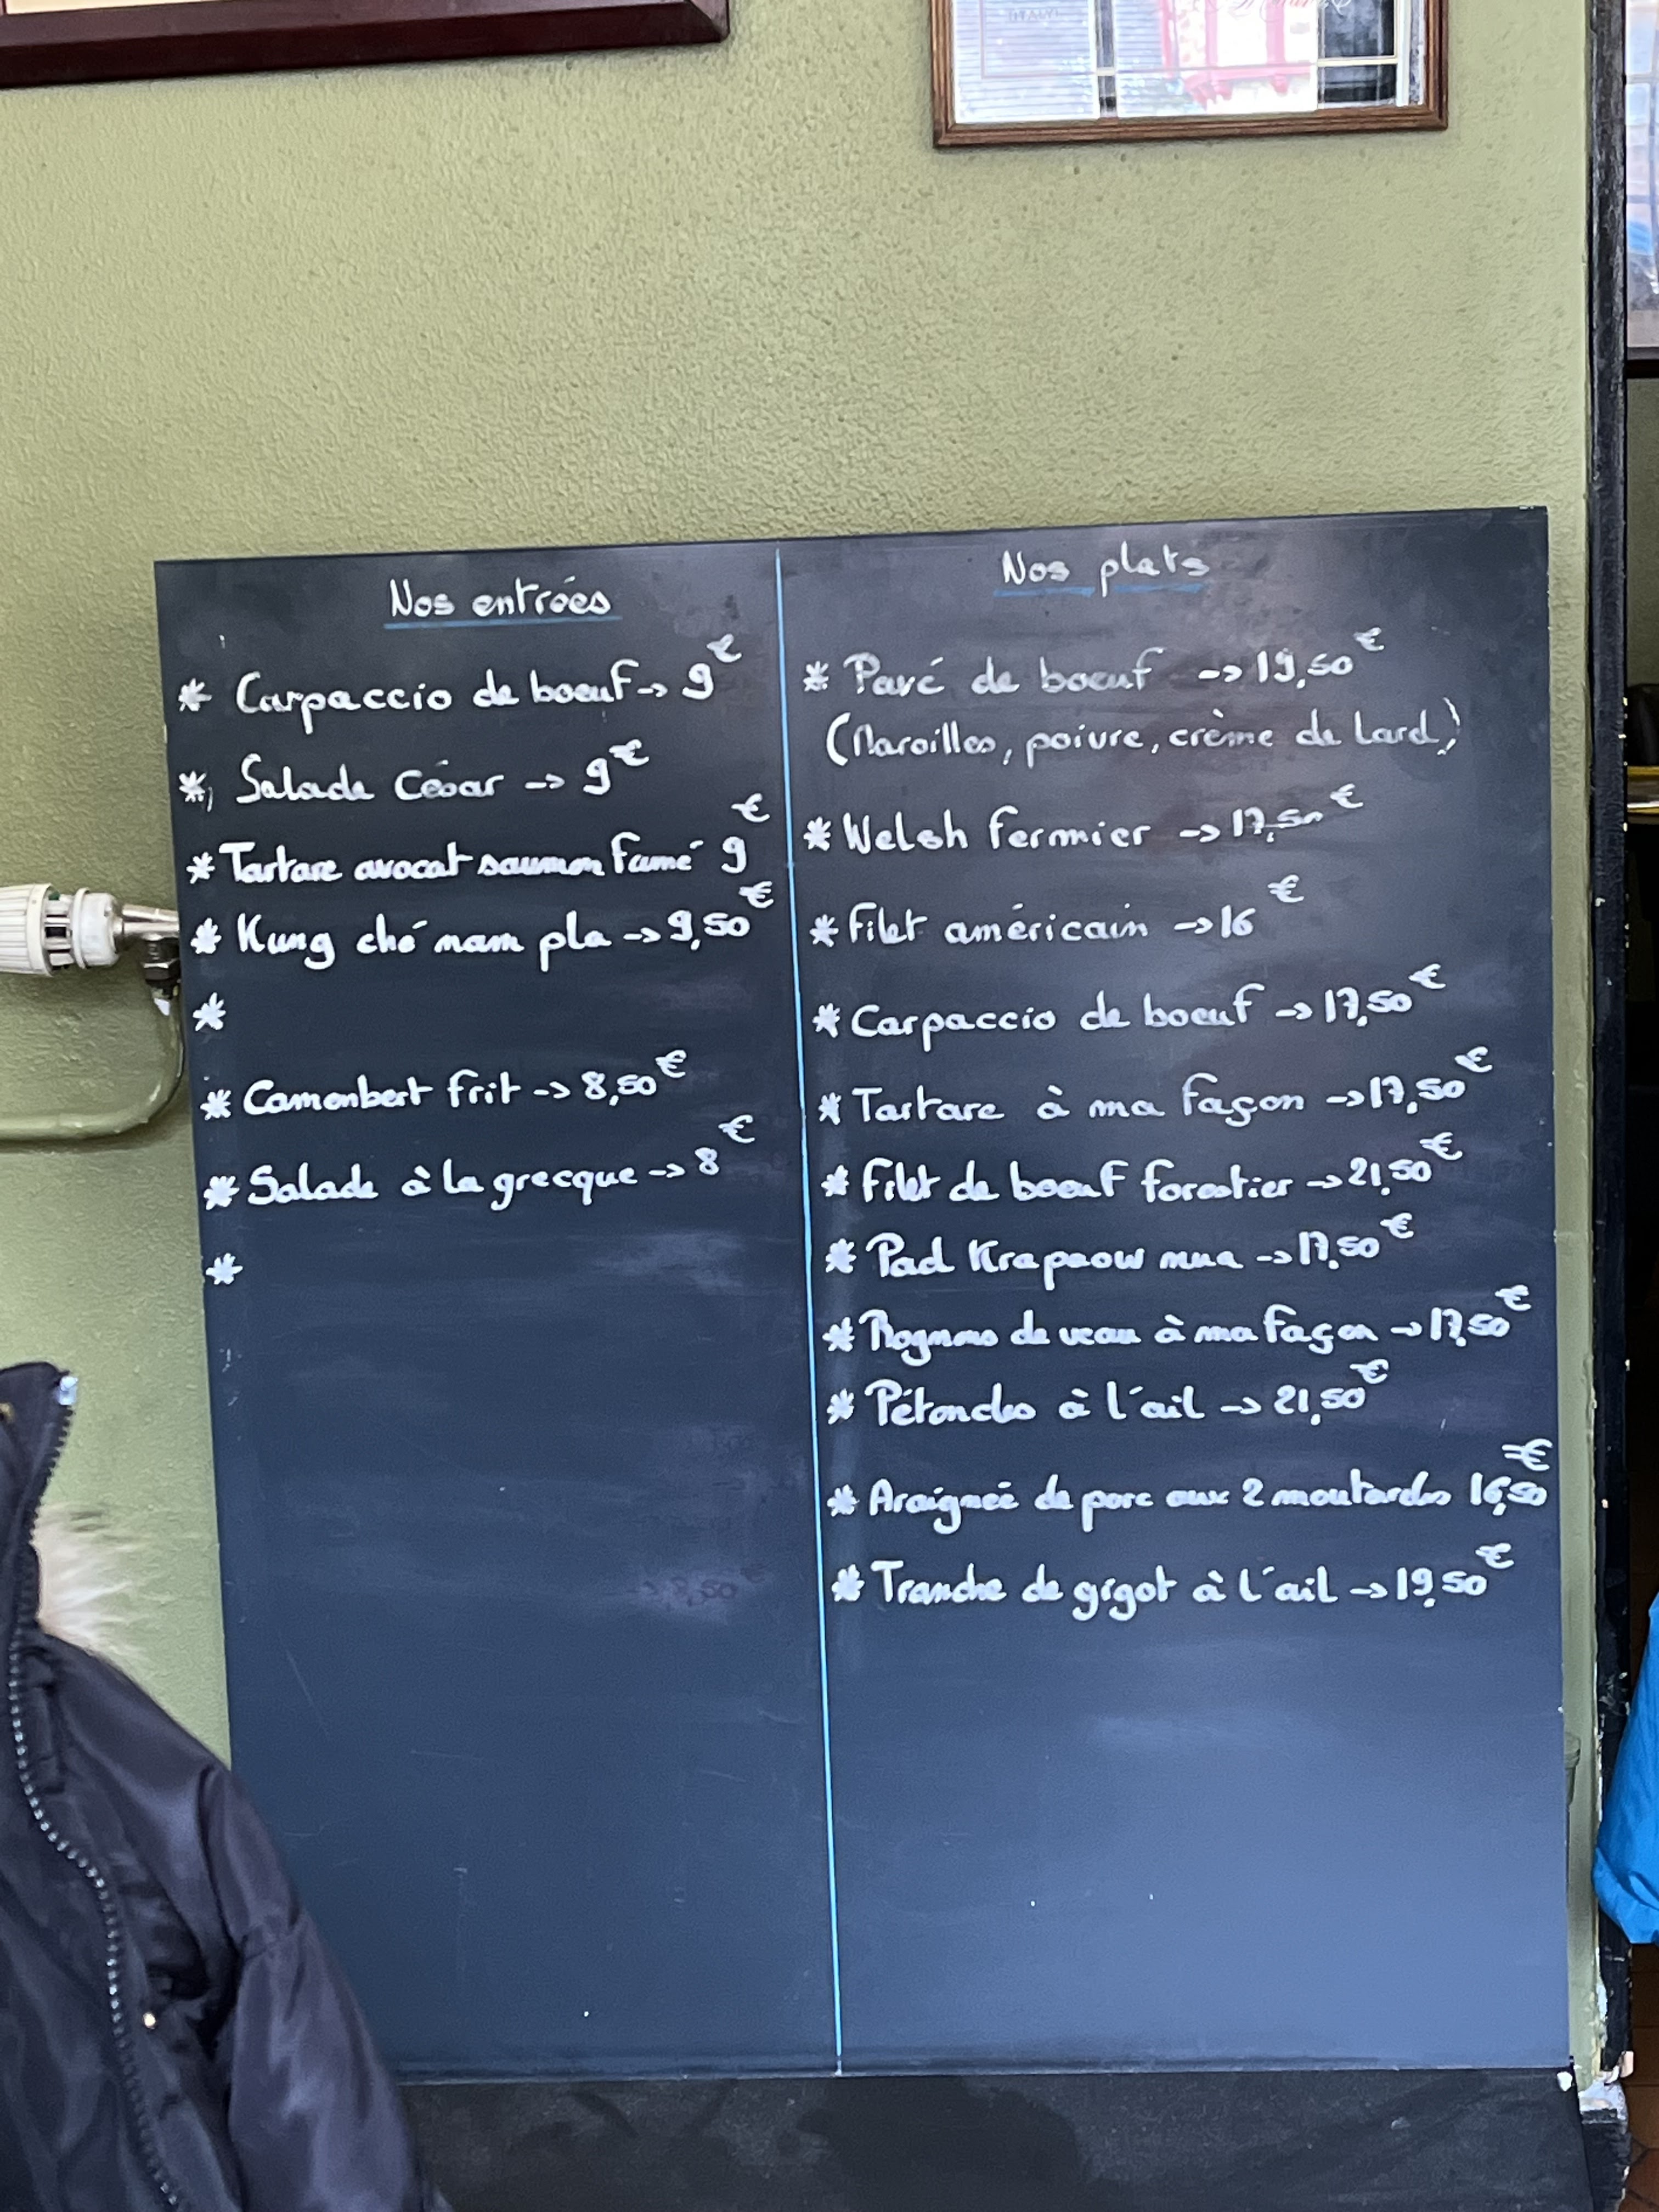 Nos entrées
* Carpaccio de boeuf -> 9€
* Salade César -> 9€
* Tartare avocat saumon fumé 9€
* Kung ché nam pla -> 9,50€
*
* Camembert frit -> 8,50€
* Salade à la grecque -> 8€
*
Nos plats
* Pavé de boeuf -> 19,50€
(Maroilles, poivre, crème de lard)
* Welsh fermier -> 17,50€
* Filet américain -> 16€
* Carpaccio de boeuf -> 17,50€
* Tartare à ma façon -> 17,50€
* Filet de boeuf forestier -> 21,50€
* Pad Krapaow mua -> 17,50€
* Rognons de veau à ma façon -> 17,50€
* Pétoncles à l'ail -> 21,50€
* Araignée de porc aux 2 moutardes 16,50€
* Tranche de gigot à l'ail -> 19,50€